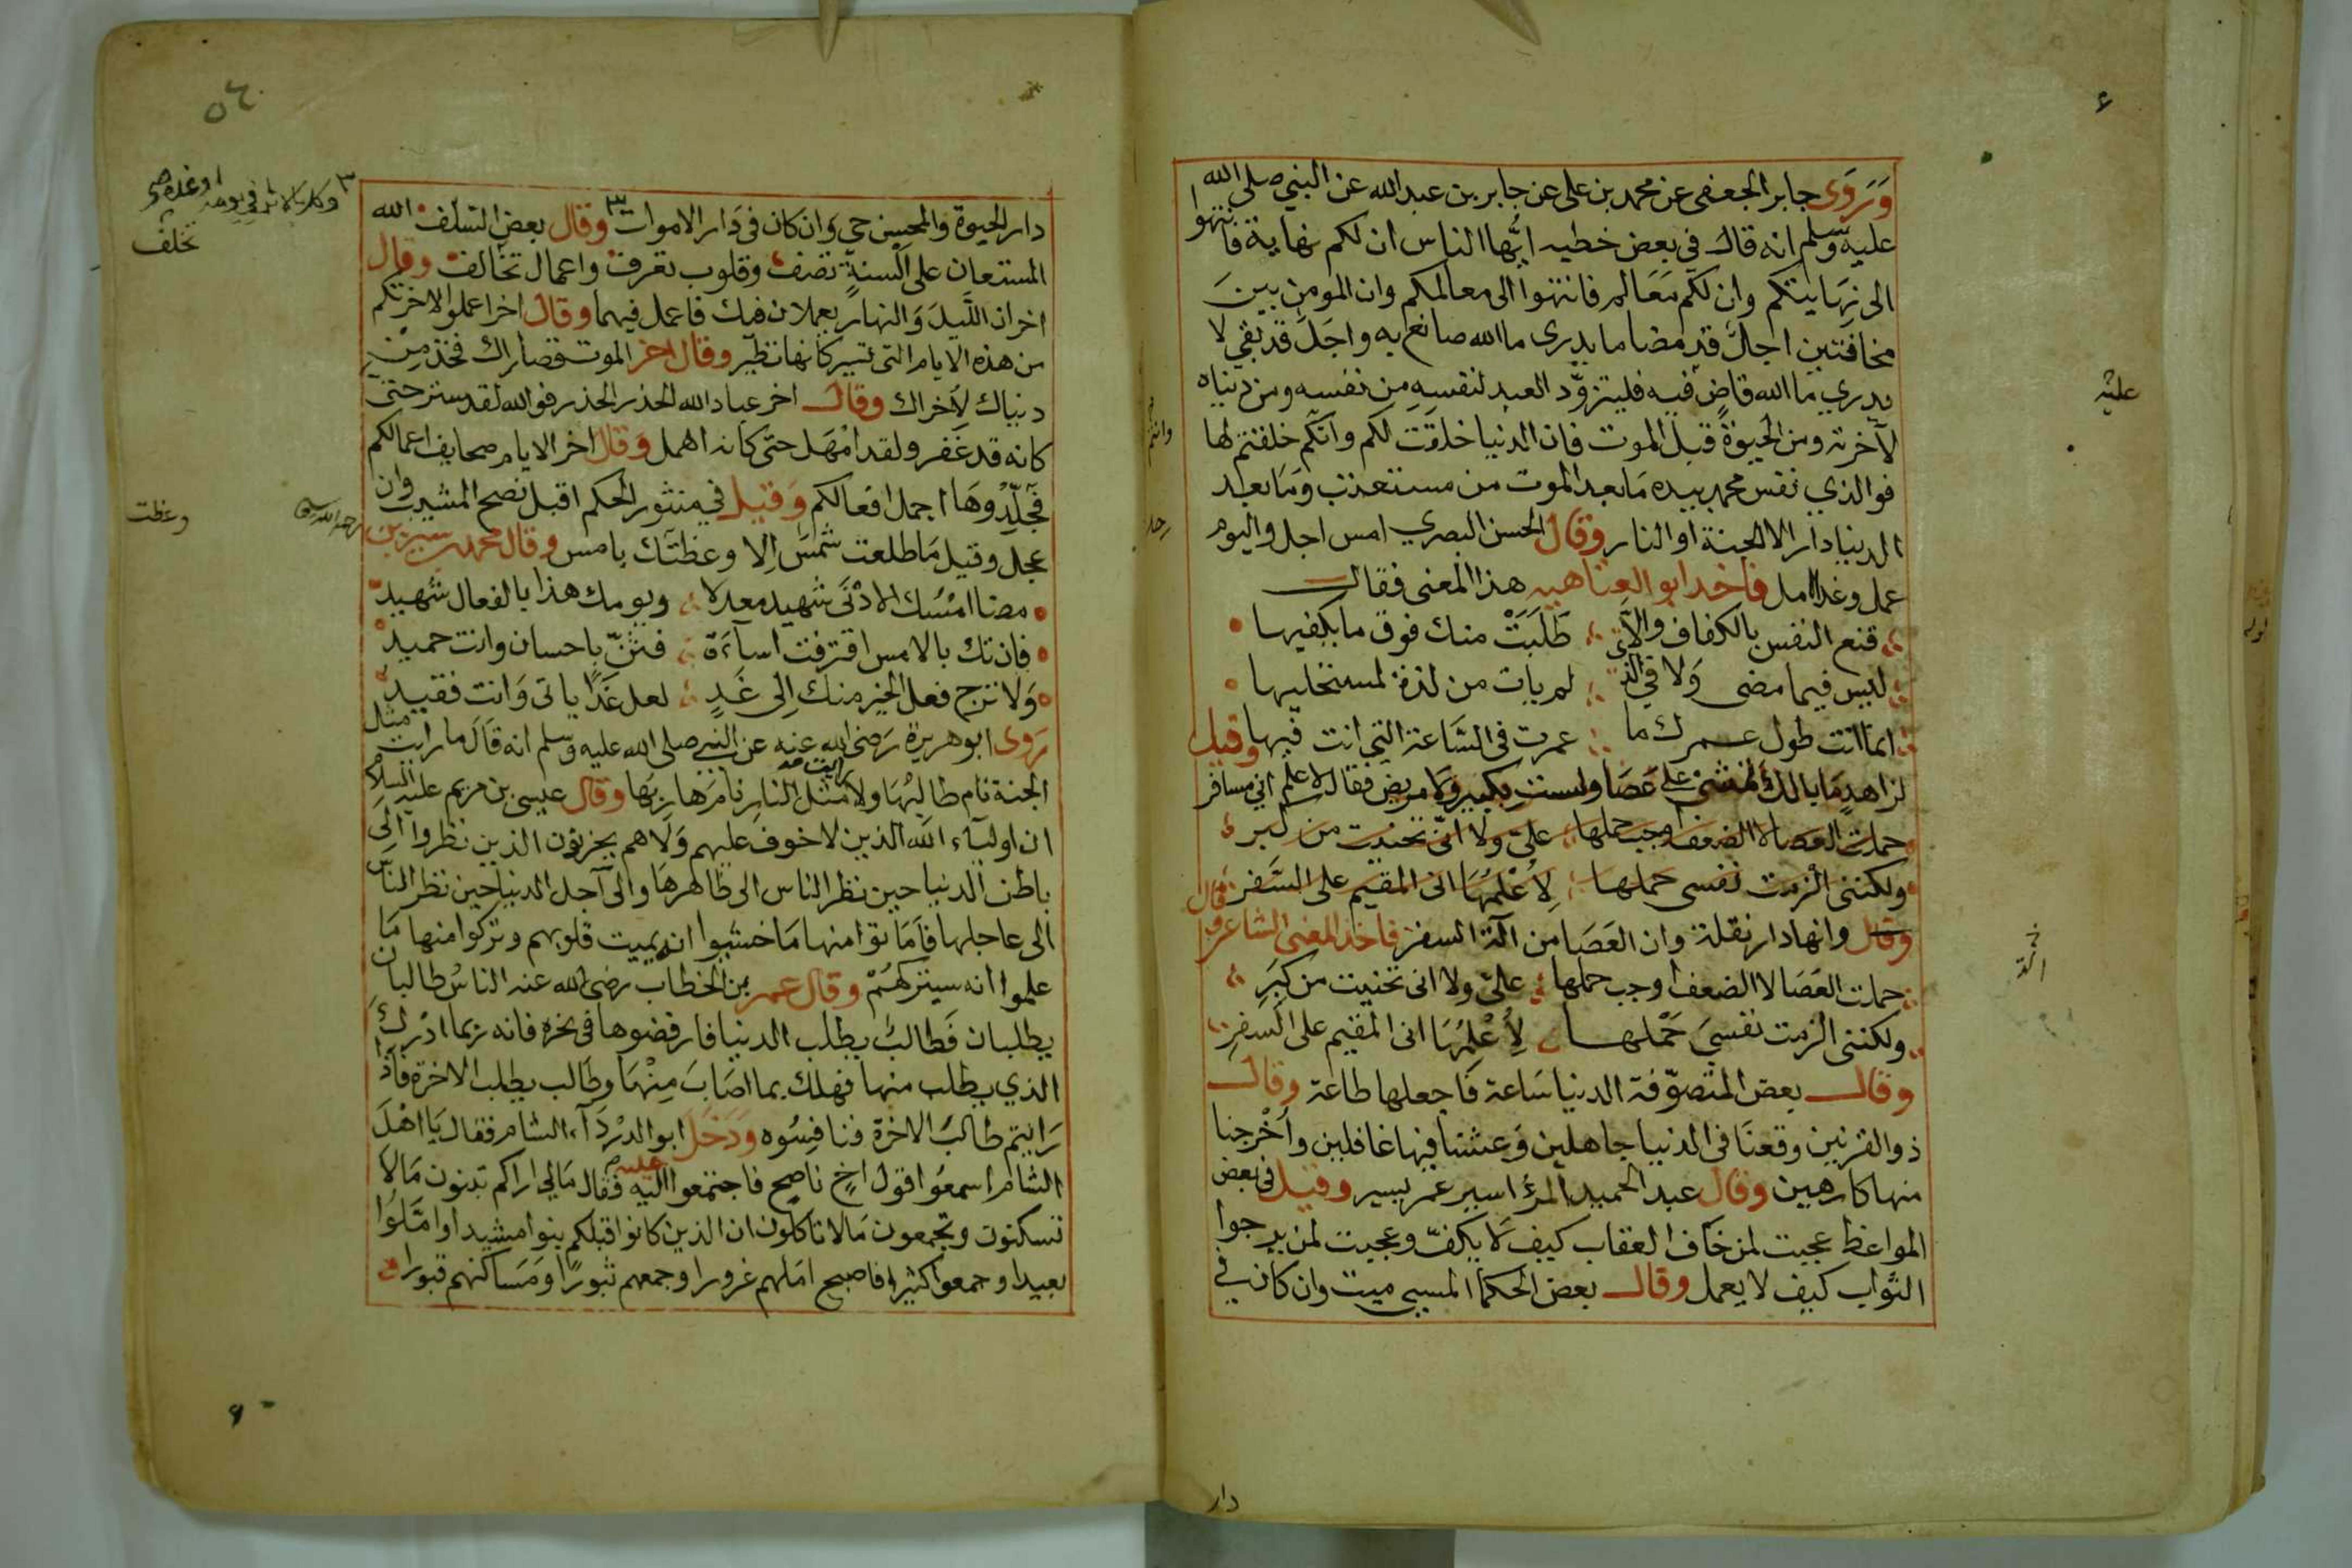 وَرَوَى جابر الجعفى عن محمد بن على عن جابر بن عبد الله عن النبي صلى الله
عليه وسلم انه قال فى بعض خطبه ايُّها الناس ان لكم نهاية فانتهوا
الى نهايتكم وان لكم مَعَالم فانتهوا الى معالمكم وان المومن بين
مخافتين اجل قد مضا ما يدرى ما الله صانع به واجَل قد بقي لا
يدري ما الله قاضٍ فيه فليتزوّد العبد لنفسهِ من نفسه ومن دنياه
لآخرته ومن الحيوة قبل الموت فان الدنيا خلقت لكم وانكم خلقتم لها
فوالذي نفس محمد بيده مَا بعد الموت من مستعتب وَمَا بعد
الدنيا دار الا الجنة او النار وقال الحسن البصري امس اجل واليوم
عمل وغدا امل فاخذ ابو العتاهيه هذا المعنى فقال
قنع النفس بالكفاف والاّ طَلَبَتْ منك فوق ما يكفيها
ليس فيما مضى وَلا في الذ لم يات من لذة لمستحليها
انما انت طول عمرك ما عمرت فى السَّاعة التي انت فيها وقيل
لزاهدٍ مَا بالك تمشى على عَصَا ولست بكبير ولا مريض فقال لاعلم اني مسافر
حملت العصا لا الضعف اوجب حملها علىّ ولا انى تحنيت من كبر
ولكننى الزمت نفسى حملها لاُعْلمُهَا انى المقيم على السَّفر فقال
وقال وانها دار نقلة وان العَصَا من آلة السفر فاخذ المعنى الشاعر وقال
حملت العَصَا لا الضعف اوجب حملها علىّ ولا انى تحنيت من كبَرِ
ولكننى الزمت نفسيَ حَمْلها لاُعْلِمُهَا انى المقيم على السَفرِ
وقال بعض المتصوّفة الدنيا سَاعة فَاجعلها طاعة وقال
ذوالقرنين وقعنَا فى الدنيا جاهلين وَعشنا فيها غافلين واُخْرجنا
منها كارهين وقال عبد الحميد المرؤ اسير عمر يسير وقيل فى بعض
المواعظ عجبت لمن خَاف العقاب كيف لاَ يكفّ وعجبت لمن يرجوا
الثواب كيف لا يعمل وقال بعض الحكماَ المسىى ميت وان كان في
دار
دار الحيوة والمحسن حي وَان كان فى دَار الاموات وقال بعض السّلف الله
المستعان على السنةٍ تصف وقلوب تعرف واعمال تخالف وقال
اخر ان اللَّيلَ وَالنهار يعملان فيك فاعمل فيهما وقال اخر اعملوا لاخرتكم
من هذه الايام التى تسير كانها تطيّر وقال اخر الموت قصاراك فخذ من
دنياك لأخراك وقال اخر عباد الله الحذر الحذر فوالله لقد ستر حتى
كانه قد غَفر ولقد امْهَل حتى كانه اهمل وَقال اخر الايام صحايف اعمالكم
فخَلّدُوهَا اجمل افعالكم وَقيل في منثور الحكم اقبل نصح المشيب وان
عجل وقيل مَا طلعت شمسٌ اِلا وعظتك بامس وقال محمد بن سيرين
مضا امْسُك الادْنَى شهيد معدلا ويومك هذا بالفعال شهيد
فان تك بالامس اقترفت اسآءَة فثنّ باحسان وانت حميد
وَلا ترج فعل الخير منك اِلى غَدٍ لعل غدًا ياتى وَانت فقيد
رَوى ابو هريرة رَضي الله عنه عن النبي صلى الله عليه وسلم انه قَالَ ما رايت مثل
الجنة نام طالبُهَا ولا رايت مثل النارِ نامَ هاربهَا وقال عيسى بن مريم عليه السلامُ
ان اوليآء الله الذين لا خوف عليهم وَلاهم يحزنون الذين نظروا الى
باطن الدنيا حين نظر الناس الى ظاهرهَا والى آجل الدنيا حين نظر الناس
الى عاجلها فاَمَاتوا منها مَا خشوا ان يميت قلوبهم وتركوا منها مَا
علموا انه سيتركهُمْ وقال عمر بن الخطاب رضى الله عنه الناسُ طالبان
يطلبان فَطالبٌ يطلب الدنيا فارفضوها فى نحره فانه ربما ادْركَ
الذي يطلب منها فهلك بما اصَابَ مِنْهَا وطَالب يطلب الاخرة فاذا
رَايتم طالبَ الاخرة فنافِسُوه وَدَخَلَ ابو الدرْدَآء الشام فقال يَا اهْلَ
الشام اسمعُوا قول اخٍ ناصِحٍ فاجتمعوا اليه عليه فقال مَالي اراكم تبنون مَالا
تسكنون وتجمعون مَالا تاكلون ان الذين كانوا قبلكم بنوا مشيدا وامّلُوا
بعيدا وجمعوا كثيرا فاصبح املهم غرورا وجمعهم ثبورًا وَمَسَاكنهم قبورا
وعظت
تخلف